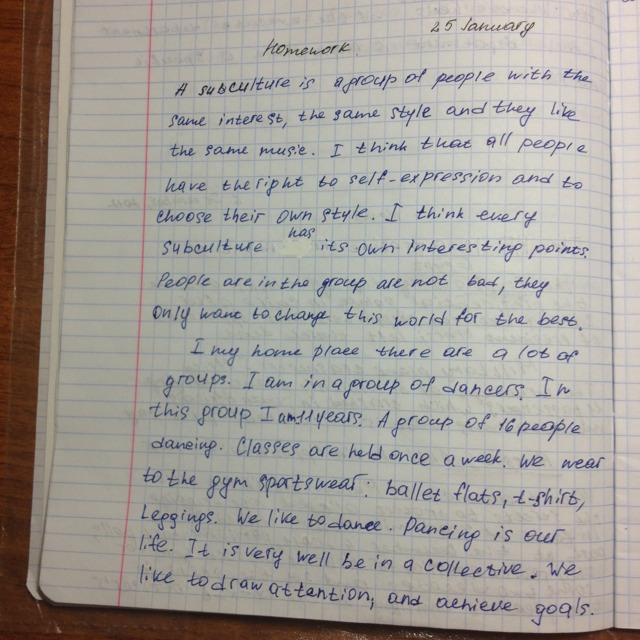 25 January
Homework.
A subculture is a group of people with the
same interest, the same style and they like
the same music. I think that all people
have the right to self-expression and to
choose their own style. I think every
subculture has its own interesting points.
People are in the group are not bad, they
only want to change this world for the best.
I my home place there are a lot of
groups. I am in a group of dancers. In
this group I am 11 years. A group of 16 people
dancing. Classes are held once a week. We wear
to the gym sportswear: ballet flats, t-shirt,
Leggings. We like to dance. Dancing is our
life. It is very well be in a collective. We
like to draw attantion, and achieve goals.